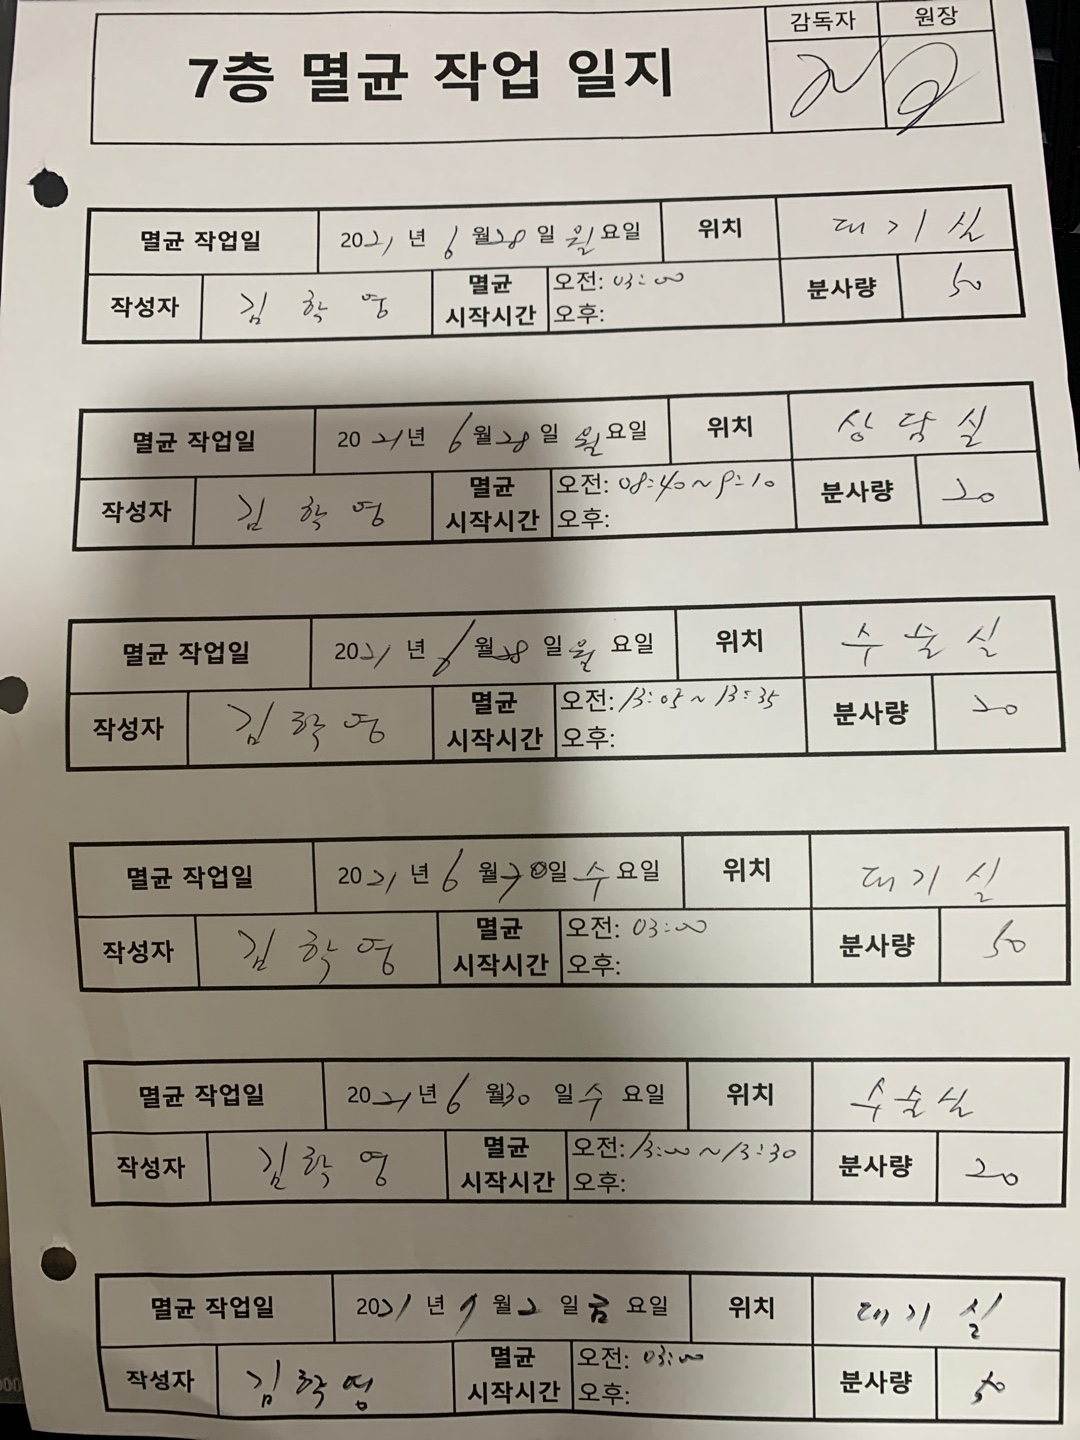 감독자 원장
7층 멸균 작업 일지
멸균 작업일 2021년 6월 28일 월요일 위치 대기실
작성자 김학영 멸균 시작시간 오전: 03:00 분사량 50
오후:
멸균 작업일 2021년 6월 28일 월요일 위치 상담실
작성자 김학영 멸균 시작시간 오전: 08:40~9:10 분사량 20
오후:
멸균 작업일 2021년 6월 28일 월요일 위치 수술실
작성자 김학영 멸균 시작시간 오전: 13:05~13:35 분사량 20
오후:
멸균 작업일 2021년 6월 30일 수요일 위치 대기실
작성자 김학영 멸균 시작시간 오전: 03:00 분사량 50
오후:
멸균 작업일 2021년 6월 30일 수요일 위치 수술실
작성자 김학영 멸균 시작시간 오전: 13:00~13:30 분사량 20
오후:
멸균 작업일 2021년 7월 2일 금요일 위치 대기실
작성자 김학영 멸균 시작시간 오전: 03:00 분사량 50
오후: